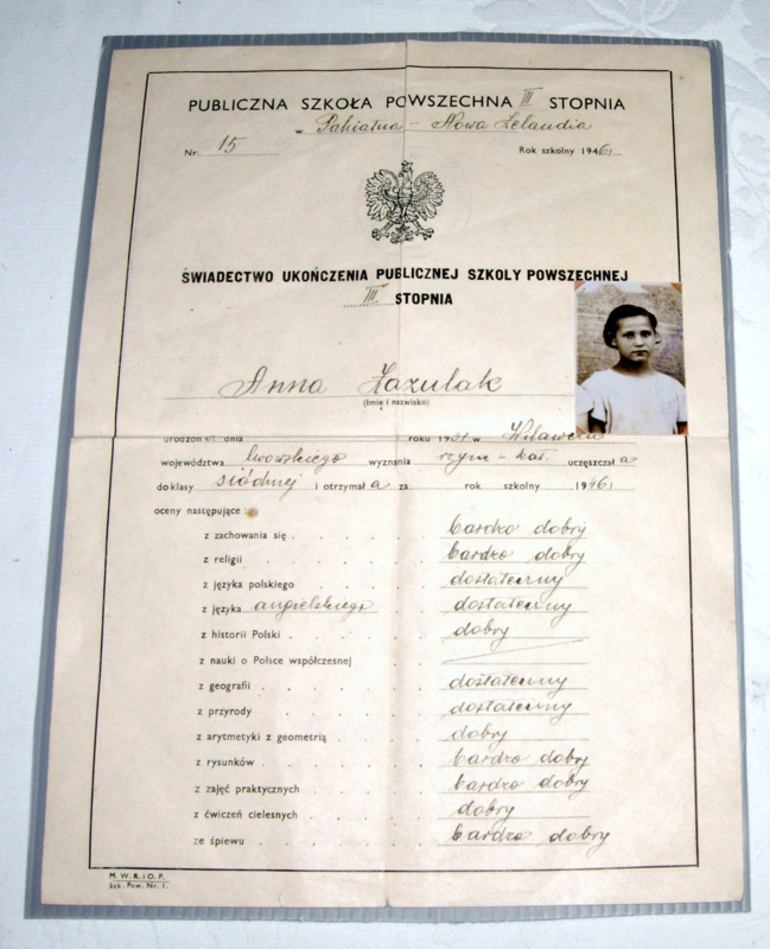 PUBLICZNA SZKOŁA POWSZECHNA III STOPNIA
w Pahiatua - Nowa Zelandia
Nr 15 Rok szkolny 1946
ŚWIADECTWO UKOŃCZENIA PUBLICZNEJ SZKOŁY POWSZECHNEJ
III STOPNIA
Anna Zazulak
(Imię i nazwisko)
urodzon dnia roku 1931 w
województwa lwowskiego wyznania rzym-kat. uczęszczał a
do klasy siódmej i otrzymał a za rok szkolny 1946
oceny następujące:
z zachowania się bardzo dobry
z religii bardzo dobry
z języka polskiego dostateczny
z języka angielskiego dostateczny
z historii Polski dobry
z nauki o Polsce współczesnej
z geografii dostateczny
z przyrody dostateczny
z arytmetyki z geometrią dobry
z rysunków bardzo dobry
z zajęć praktycznych bardzo dobry
z ćwiczeń cielesnych dobry
ze śpiewu bardzo dobry
M. W. R. i O. P.
Szk. Pow. Nr. 1.